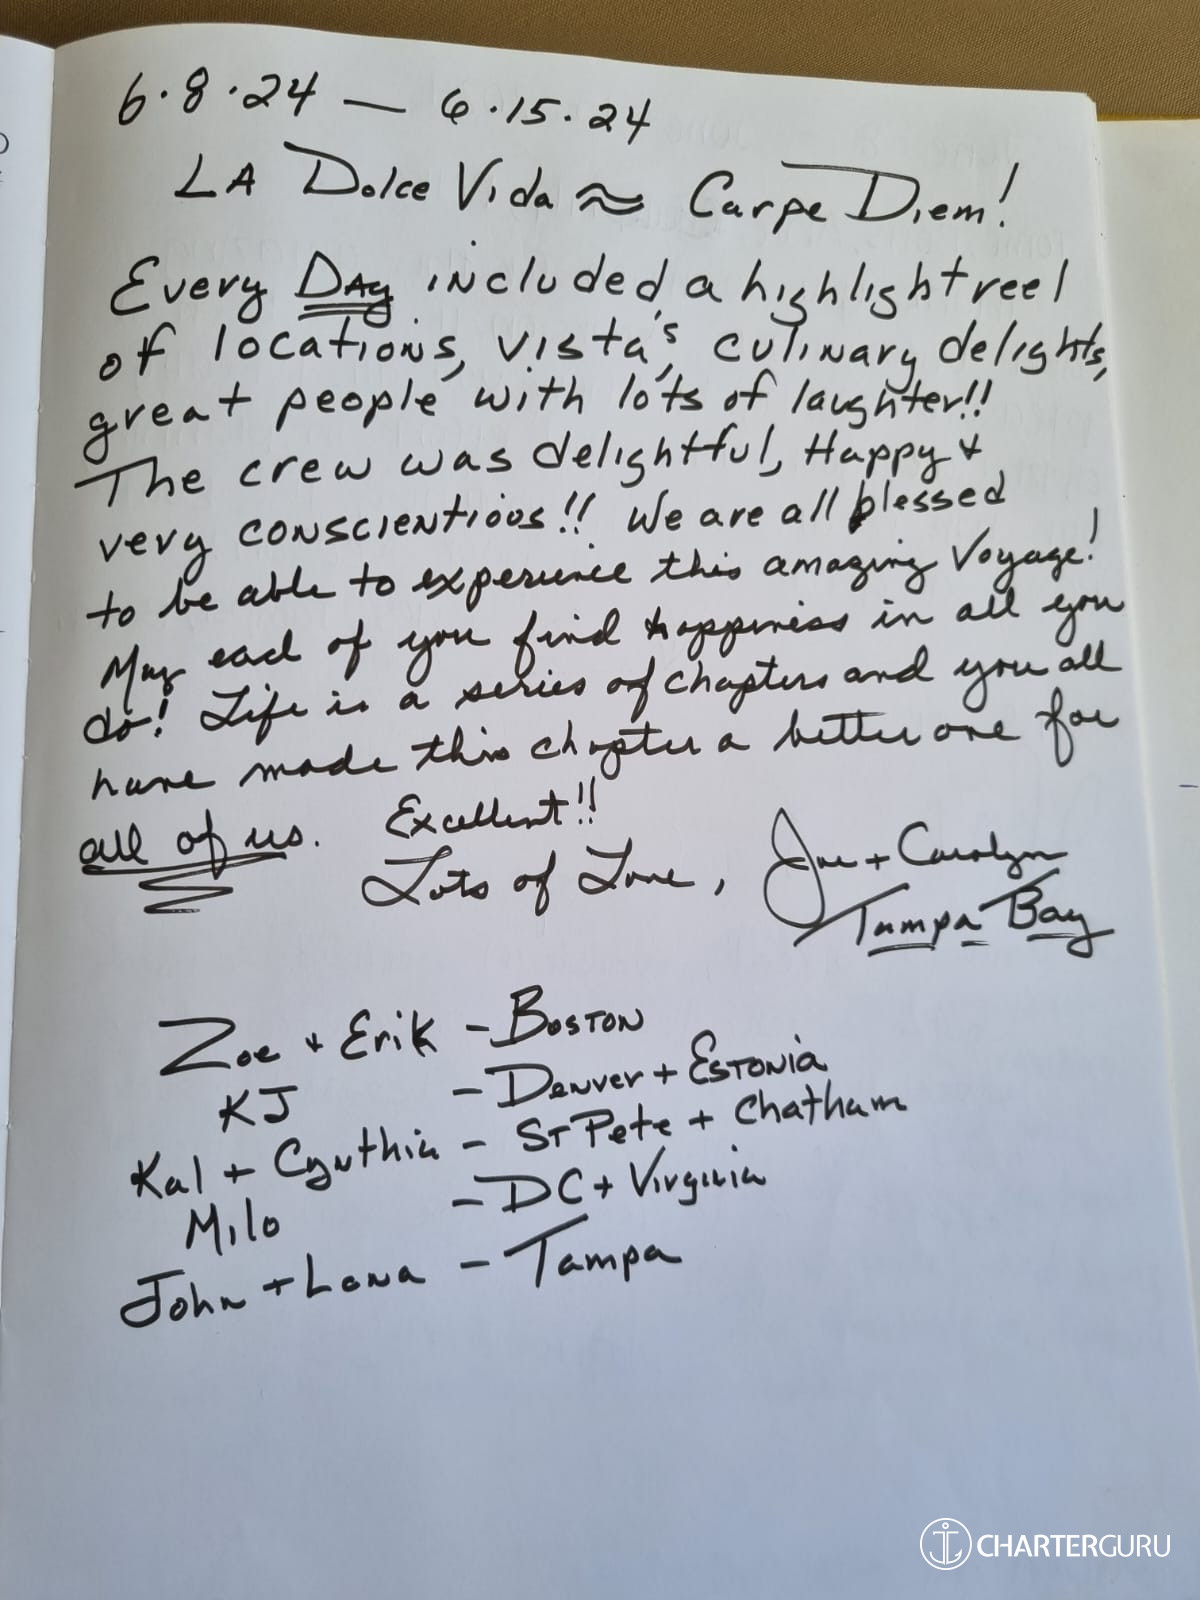 6.8.24 — 6.15.24
LA Dolce Vida ≈ Carpe Diem!
Every DAy included a highlight reel
of locations, vista's, culinary delights,
great people with lots of laughter!!
The crew was delightful, Happy +
very conscientious!! We are all blessed
to be able to experience this amazing Voyage!
May each of you find happiness in all you
do! Life is a series of chapters and you all
have made this chapter a better one for
all of us. Excellent!!
Lots of Love, Joe + Carolyn
Tampa Bay
Zoe + Erik - Boston
KJ - Denver + Estonia
Kal + Cynthia - St Pete + Chatham
Milo - DC + Virginia
John + Lana - Tampa
CHARTERGURU